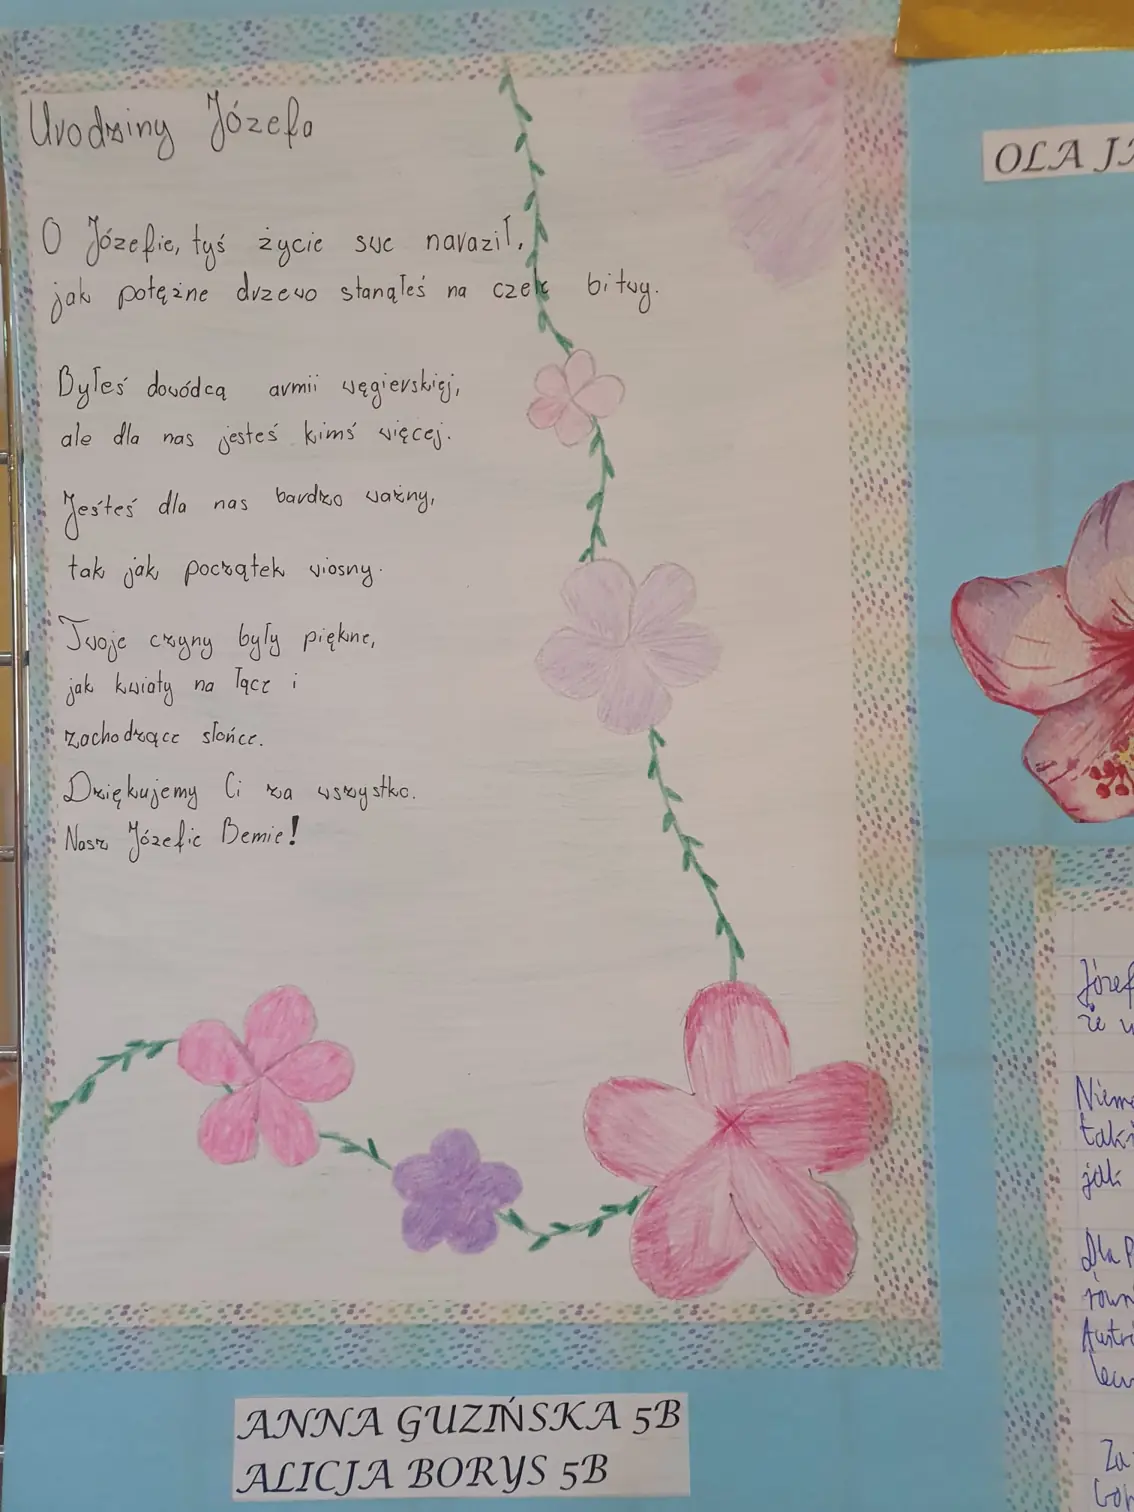 Urodziny Józefa
O Józefie, tyś życie swe naraził,
jak potężne drzewo stanąłeś na czele bitwy.
Byłeś dowódcą armii węgierskiej,
ale dla nas jesteś kimś więcej.
Jesteś dla nas bardzo ważny,
tak jak początek wiosny.
Twoje czyny były piękne,
jak kwiaty na łące i
zachodzące słońce.
Dziękujemy Ci za wszystko.
Nasz Józefie Bemie!
ANNA GUZIŃSKA 5B
ALICJA BORYS 5B
OLA
że
jak
Dla
Za